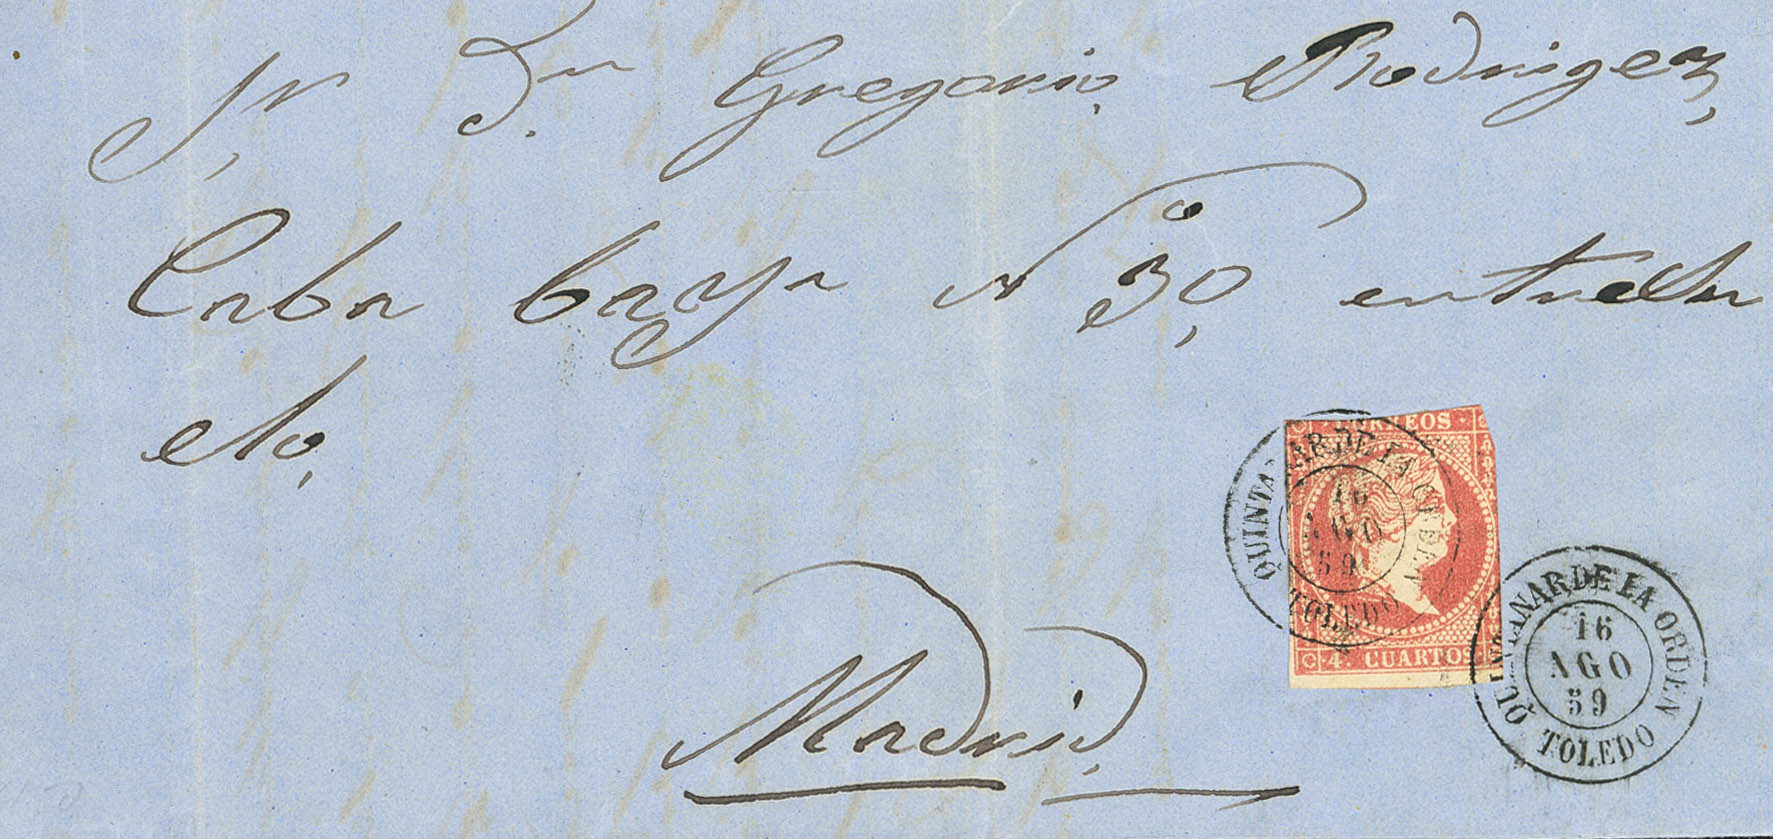 Sr. Dn Gregorio Rodrigez,
Caba baja n 30, entresu
elo,
CORREOS
QUINTANAR DE LA ORDEN
16
AGO
59
TOLEDO
4. CUARTOS
Madrid.
QUINTANAR DE LA ORDEN
16
AGO
59
TOLEDO